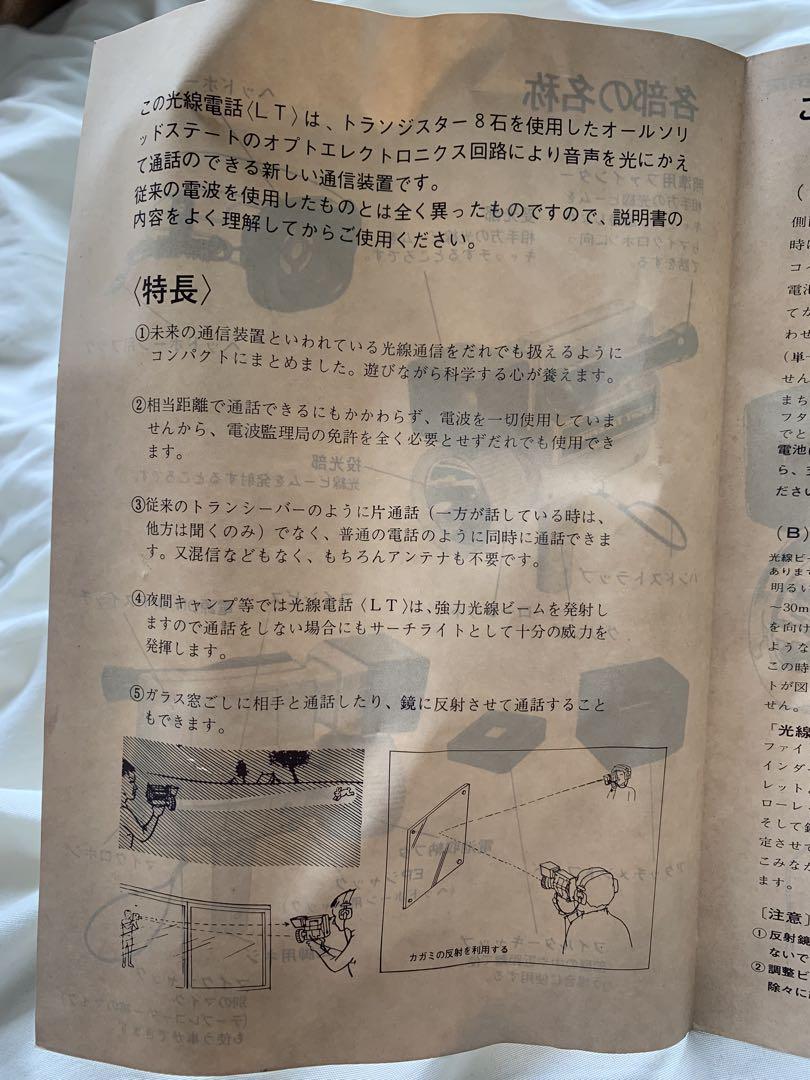 この光線電話〈LT〉は、トランジスター8石を使用したオールソリ
ッドステートのオプトエレクトロニクス回路により音声を光にかえ
て通話のできる新しい通信装置です。
従来の電波を使用したものとは全く異ったものですので、説明書の
内容をよく理解してからご使用ください。
〈特長〉
①未来の通信装置といわれている光線通信をだれでも扱えるように
コンパクトにまとめました。遊びながら科学する心が養えます。
②相当距離で通話できるにもかかわらず、電波を一切使用していま
せんから、電波監理局の免許を全く必要とせずだれでも使用でき
ます。
③従来のトランシーバーのように片通話（一方が話している時は、
他方は聞くのみ）でなく、普通の電話のように同時に通話できま
す。又混信などもなく、もちろんアンテナも不要です。
④夜間キャンプ等では光線電話〈LT〉は、強力光線ビームを発射し
ますので通話をしない場合にもサーチライトとして十分の威力を
発揮します。
⑤ガラス窓ごしに相手と通話したり、鏡に反射させて通話すること
もできます。
カガミの反射を利用する
（
側
時
コ
電池
てか
わせ
（単
せん
まち
フタ
でと
電池
ら、
ださい
（B）
光線ビ
あります
明るい
～30m
を向け
ような
この時
トが図
せん。
「光線
ファイ
インダ
レット
ローレ
そして
定させて
こみなが
ます。
〔注意〕
①反射鏡
ないで
②調整ビ
除々に